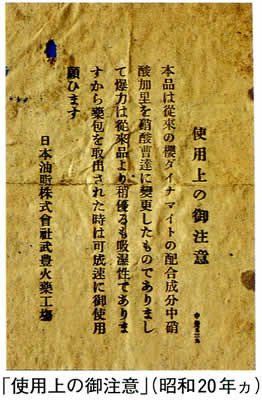 使用上の御注意
本品は從來の櫻ダイナマイトの配合成分中硝
酸加里を硝酸曹達に變更したものでありまし
て爆力は從來品より稍優るも吸濕性でありま
すから藥包を取出された時は可成速に御使用
願ひます
日本油脂株式會社武豊火藥工場
「使用上の御注意」(昭和20年ヵ)